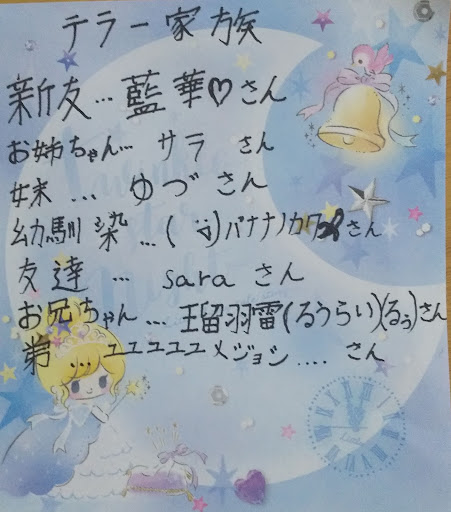 テラー家族
新友…藍華♡さん
お姉ちゃん… サラ さん
妹 … ゆづさん
幼馴染…( ¨̮)バナナノカワさん
友達 … saraさん
お兄ちゃん…瑠羽雷(るうらい)(るっ)さん
弟 …ユユユユユメジョン....さん